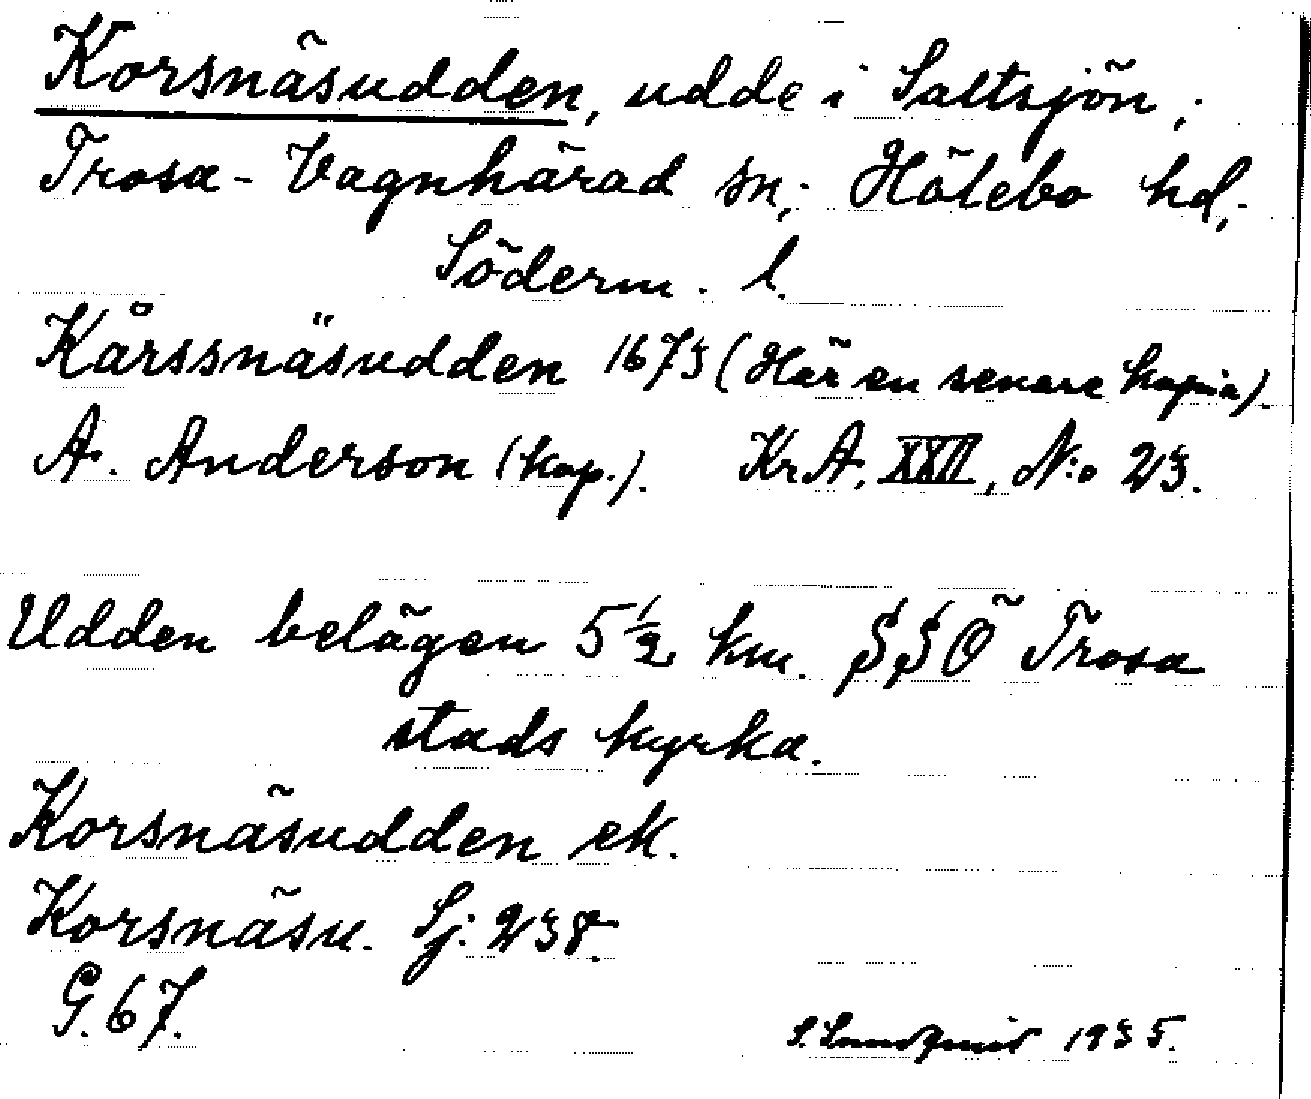 Korsnäsudden, udde i Saltsjön,
Trosa-Vagnhärad sn; Hölebo hd,
Söderm. l.
Kårssnäsudden 1673 (Här en senare kopia).
A. Anderson (kop.). Kr.A. XXII, N:o 23.
Udden belägen 5 1/2 km. SSÖ Trosa
stads kyrka.
Korsnäsudden ek.
Korsnäsu. Sj. 238.
G. 67.
S. Lundquist 1935.